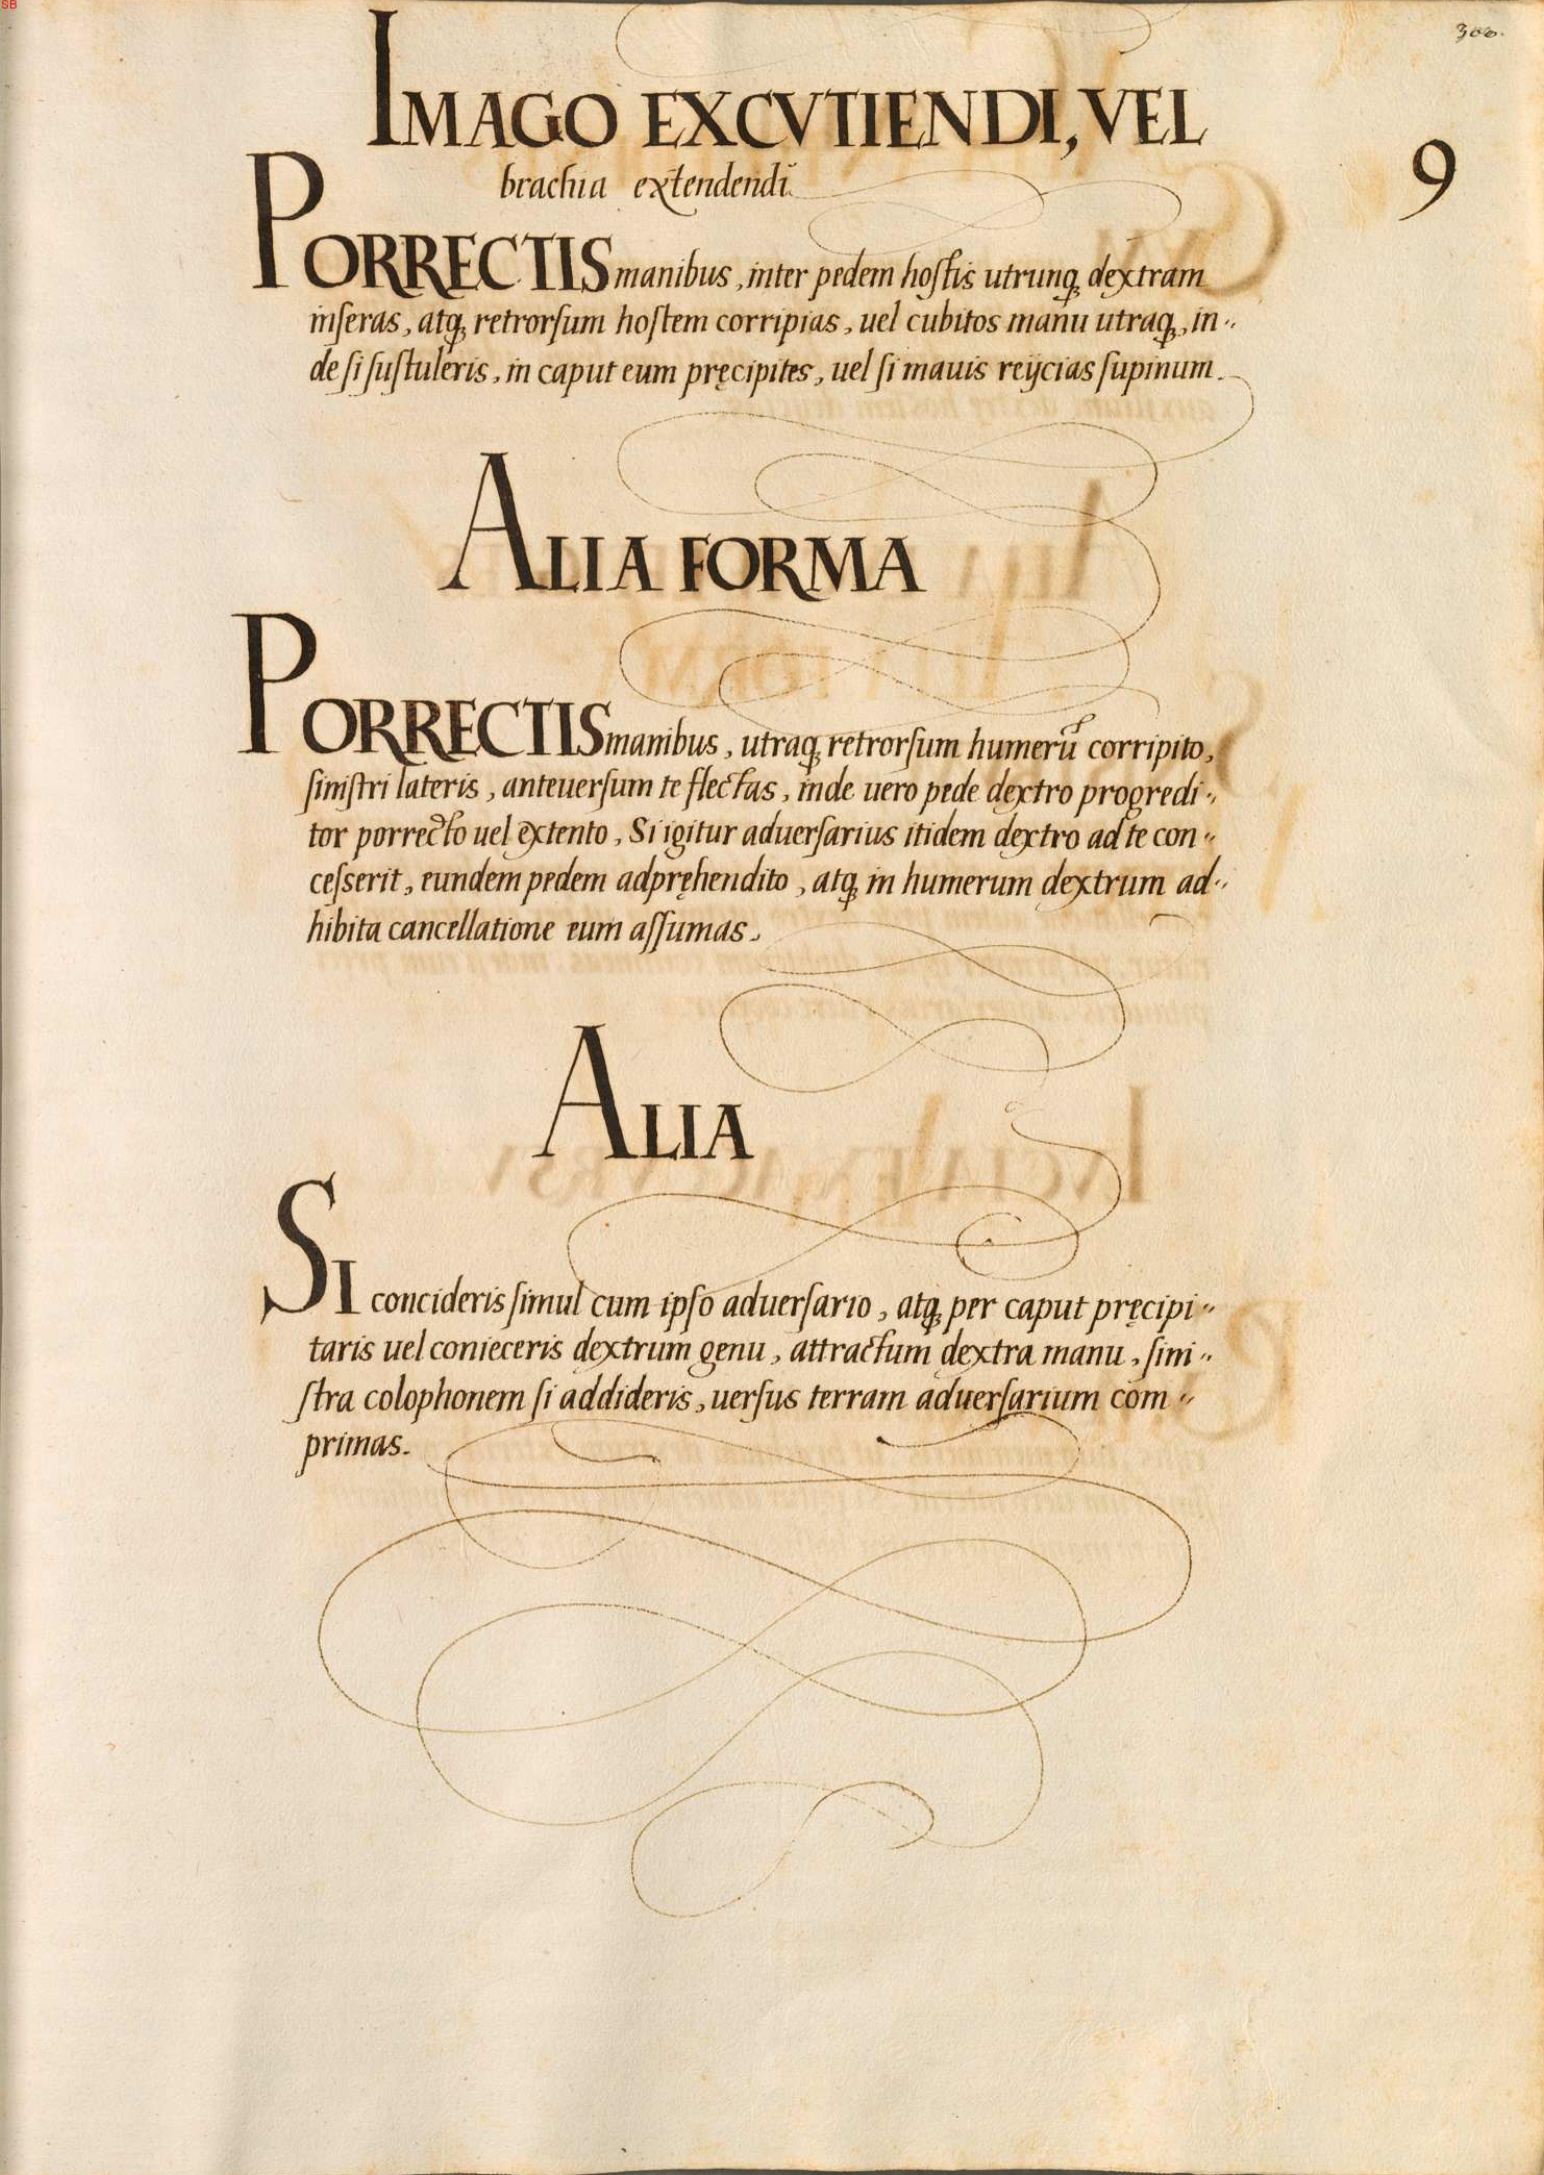 SB
300.
IMAGO EXCVTIENDI, VEL
9
brachia extendendi.
PORRECTIS manibus, inter pedem hoſtis utrunq́ꝫ dextram
inſeras, atqꝫ retrorſum hoſtem corripias, uel cubitos manu utraqꝫ, in"
de ſi ſuſtuleris, in caput eum pręcipites, uel ſi mauis reijcias ſupinum.
ALIA FORMA
PORRECTIS manibus, utraqꝫ retrorſum humerũ corripito,
ſiniſtri lateris, anteuerſum te flectas, inde uero pede dextro progredi"
tor porrecto uel extento, Si igitur aduerſarius itidem dextro ad te con"
ceſserit, eundem pedem adpręhendito, atqꝫ in humerum dextrum ad"
hibita cancellatione eum aſſumas.
ALIA
SI concideris ſimul cum ipſo aduerſario, atqꝫ per caput pręcipi"
taris uel conieceris dextrum genu, attractum dextra manu, ſini"
ſtra colophonem ſi addideris, uerſus terram aduerſarium com"
primas.